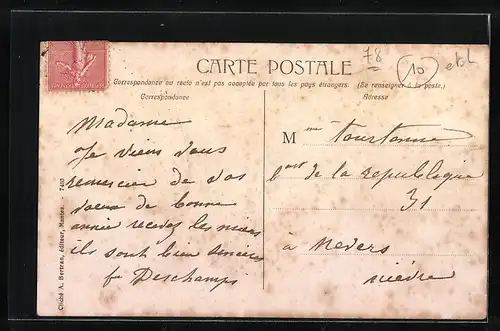 78
10
CARTE POSTALE
Correspondance au recto n'est pas acceptée par tous les pays étrangers. (Se renseigner à la poste.)
Correspondance
Adresse
Madame
Je viens vous
remercier de vos
voeux de bonne
année recevez les miens
ils sont bien sincères
Deschamps
Mme Tourtonne
de la republique
31
à Nevers
nièvre
Cliché A. Bertran, éditeur, Mantes. - 7403